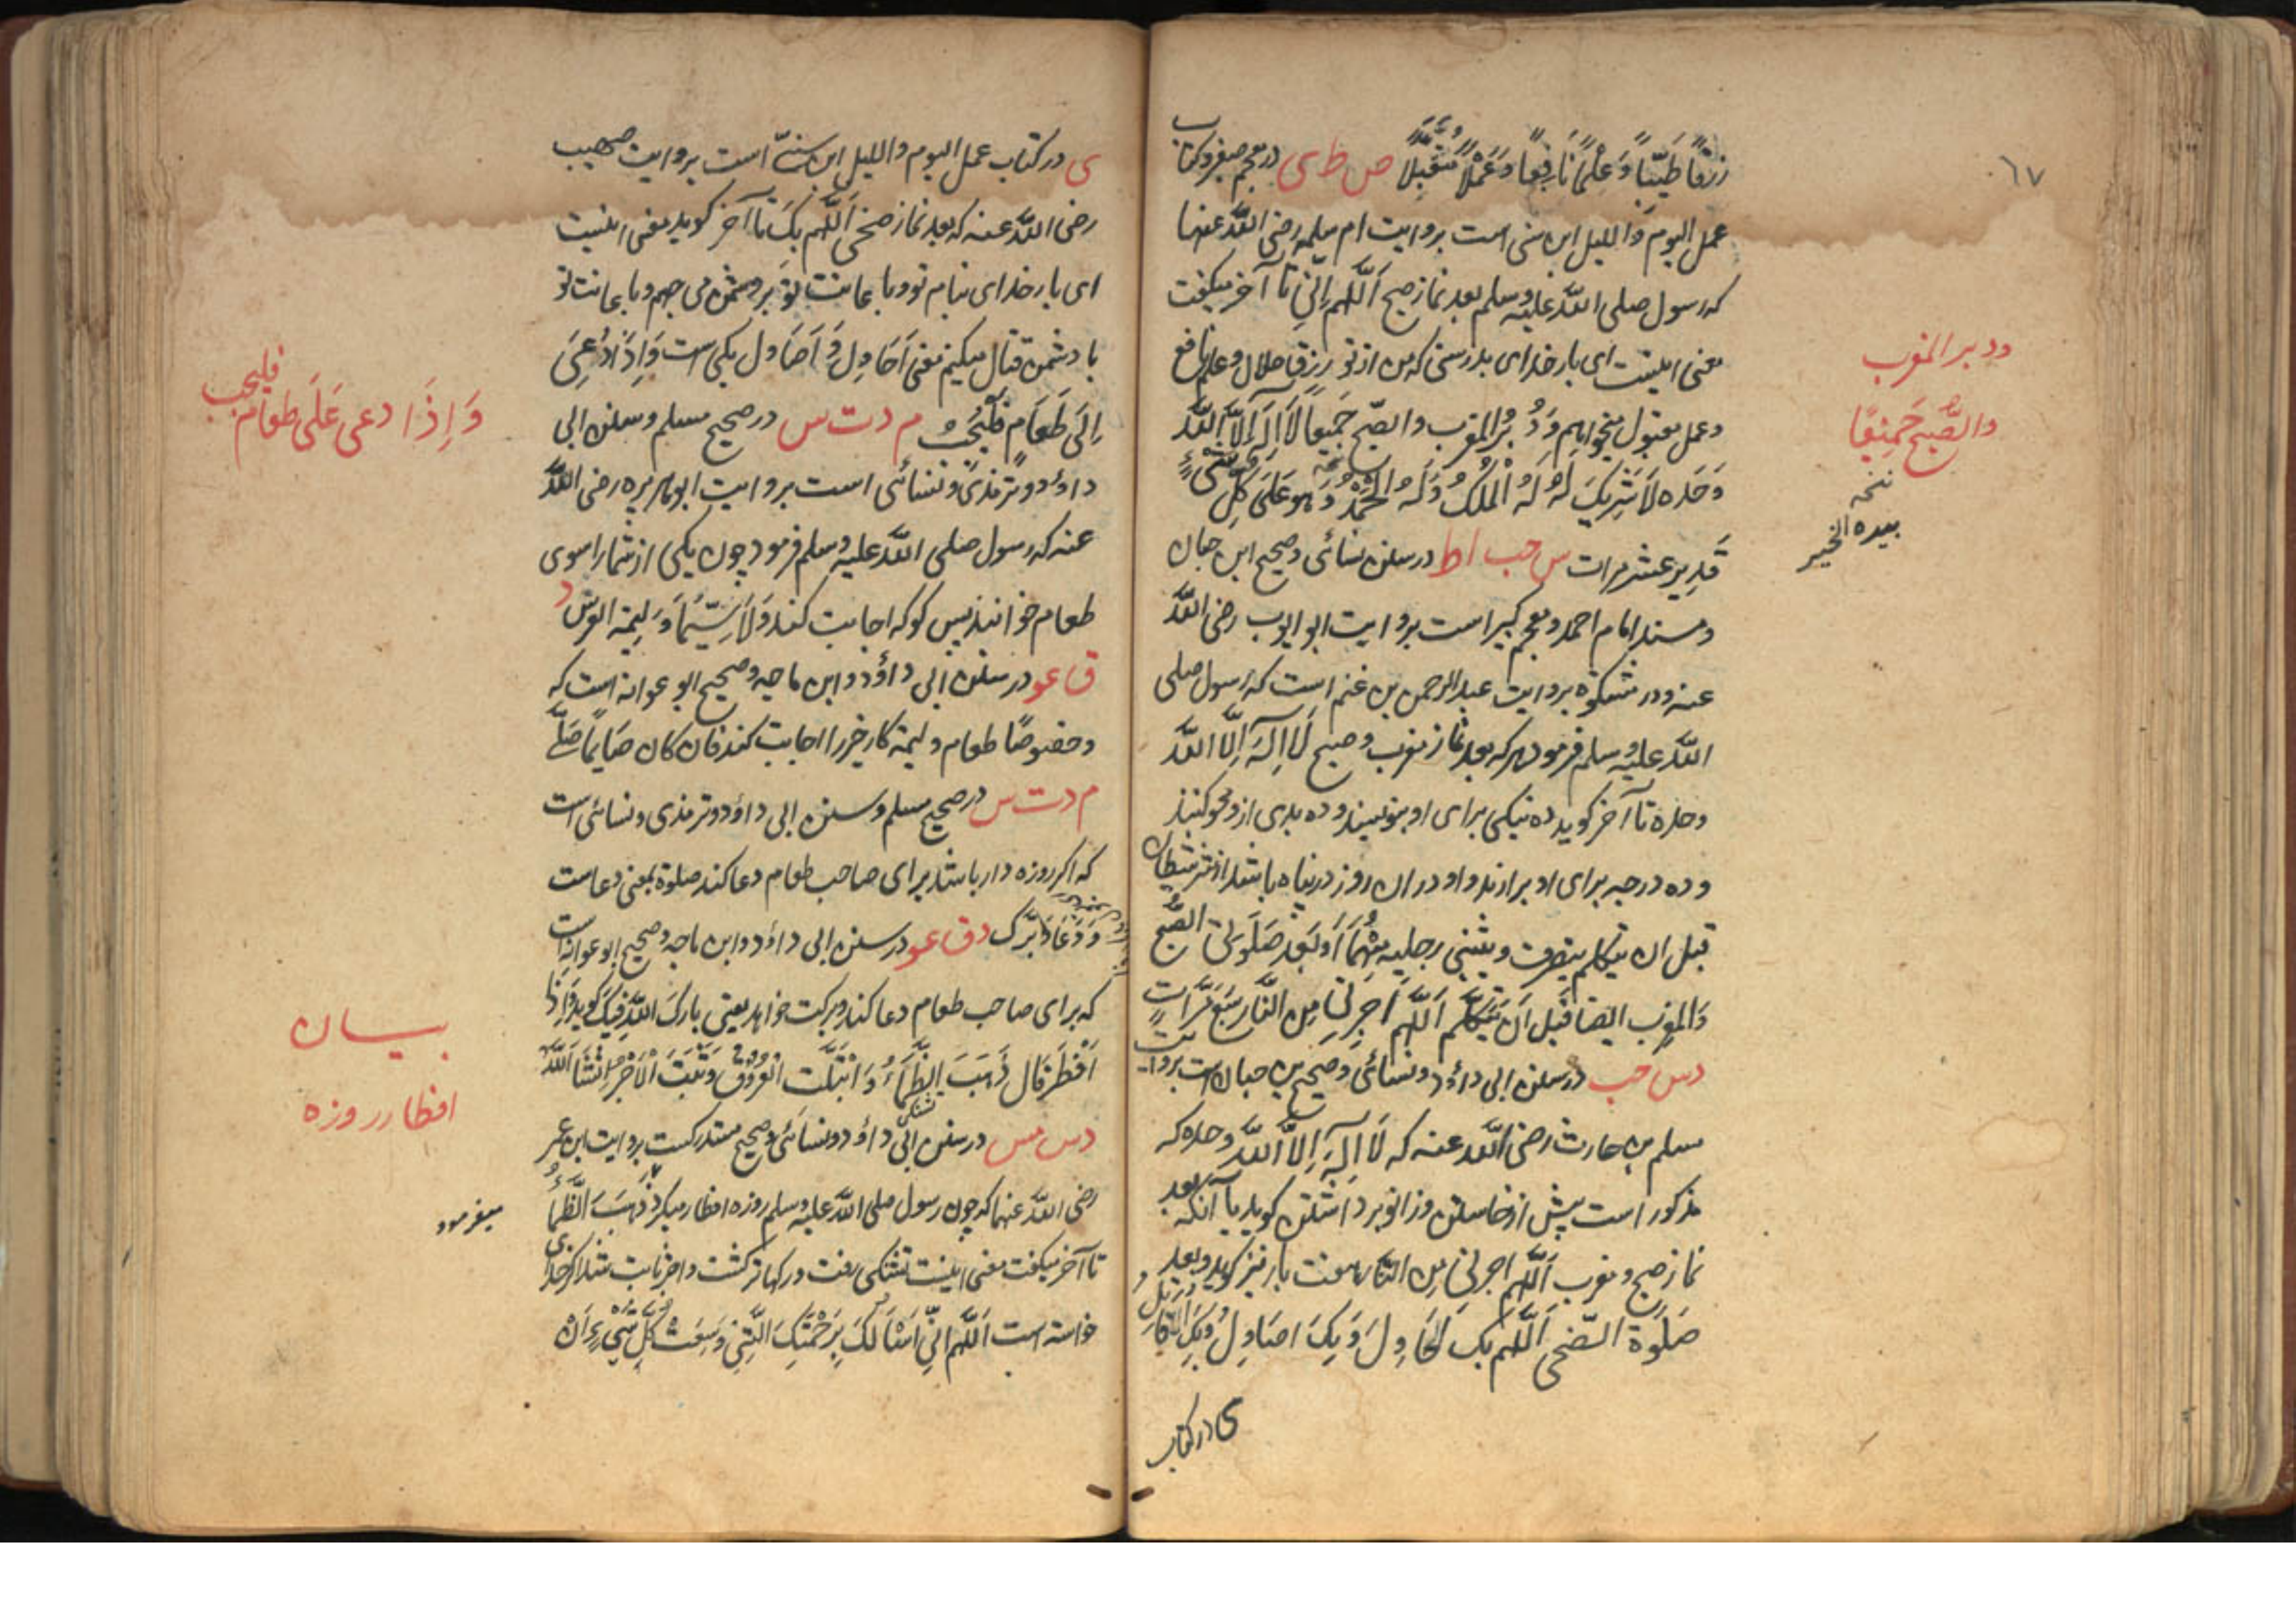 ٦٧
رزقًا طَيِّبًا وَعِلْمًا نَافِعًا وَعَمَلًا مُتَقَبَّلًا ص ط ی در معجم صغیر و کتاب
عمل الیوم واللیل ابن سنی است بروایت ام سلمه رضی الله عنها
که رسول صلی الله علیه وسلم بعد نماز صبح اَللّهم اِنّی تا آخر میگفت
معنی اینست ای بار خدای بدرستی که من از تو رزق حلال و علم نافع
و عمل مقبول میخواهم وَدُبُرَ المغرب والصّبح جَمیعاً لَا اِلٰهَ اِلَّا اللّٰه
وَحْدَه لَا شَرِیکَ لَهُ لَهُ الْمُلکُ وَلَهُ الْحَمْدُ وَهو عَلَی کُلِّ شَیْءٍ
قَدِیر عشر مرات س حب ا ط در سنن نسائی و صحیح ابن حبان
و مسند امام احمد و معجم کبیر است بروایت ابو ایوب رضی اللّه
عنه و در مشکوة بروایت عبد الرحمن بن غنم است که رسول صلی
اللّه علیه وسلم فرمود هر که بعد نماز مغرب و صبح لَا اِلٰهَ اِلَّا اللّه
وحده تا آخر گوید ده نیکی برای او بنویسند و ده بدی از و محو کنند
و ده درجه برای او بر ارند و او در ان روز در پناه باشد از شر شیطان
قبل ان یتکلم ینصرف و یثنی رجلیه مِنْهُمَا اَو بَعْد صَلَوتَی الصُّبح
وَالمَغرِب ایضا قَبل اَنْ یَّتَکَلَّم اَللّهم اَجِرنِی مِن النَّار سَبْعَ مَرَّاتٍ
د س حب در سنن ابی داؤد و نسائی و صحیح بن حبان است بروایت
مسلم بن حارث رضی اللّه عنه که لَا اِلٰهَ اِلَّا اللّه وحده که
مذکور است پیش از خاستن و زانو برداشتن گوید یا آنکه بعد
نماز صبح و مغرب اَللّهم اجرنی مِن النَّار هفت بار نیز گوید و بعد
صَلٰوة الضّحی اَللّهم بِکَ اُحَاوِلُ وَ بِکَ اُصَاوِلُ وَ بِکَ اُقَاتِلُ
ی در کتاب
ودبر المغرب
والصُّبح جَمِیْعًا
نسخه
بیده الخیر
ی در کتاب عمل الیوم واللیل ابن سنّی است بروایت صهیب
رضی اللّه عنه که بعد نماز ضحی اَللّهم بِکَ تا آخر گوید معنی اینست
ای بار خدای بنام تو و با عانت تو بر دشمن می جهم و با عانت تو
با دشمن قتال میکنم معنی اَحَاوِل وَ اَصَاوِل یکی است وَاِذَا دُعِیَ
اِلَی طَعَامٍ فَلْیُجِبْ م د ت س در صحیح مسلم و سنن ابی
داؤد و ترمذی و نسائی است بروایت ابو هریره رضی اللّه
عنه که رسول صلی اللّه علیه وسلم فرمود چون یکی از شما را سوی
طعام خوانند پس گو که اجابت کند وَلَا سِیَّمَا وَلِیمَة العرس د
ق عو در سنن ابی داؤد و ابن ماجه و صحیح ابو عوانه است که
و خصوصًا طعام ولیمه کار خیر را اجابت کند فان کان صَایمًا صَلّٰی
م د ت س در صحیح مسلم و سنن ابی داؤد و ترمذی و نسائی است
که اگر روزه دار باشد برای صاحب طعام دعا کند صلوة بمعنی دعاست
وَ دَعَا وَبَرَّک د ق عو در سنن ابی داؤد و ابن ماجه و صحیح ابو عوانه است
که برای صاحب طعام دعا کند و برکت خواهد یعنی بارک اللّه فیک گوید وَاِذَا
اَفْطَرَ قَال ذَهَبَ الظَّمَأُ وَ ابْتَلَّت العُرُوق وَثَبَتَ الْاَجْر اِنْشَاءَ اللّه
د س مس در سنن ابی داؤد و نسائی و صحیح مستدرکست بروایت ابن عمر
رضی اللّه عنهما که چون رسول صلی اللّه علیه وسلم روزه افطار میکرد ذَهَبَ الظَّمَأُ
تا آخر میگفت معنی اینست تشنگی رفت و رکها تر گشت و اجر ثابت شد اگر خدای
خواسته است اَللّهم اِنِّی اَسْئَالُکَ بِرَحْمَتِکَ الَّتِی وَسِعَتْ کُلَّ شَیْءٍ اَنْ
وَاِذَا دعی عَلَی طعام فلیجب
بیان
افطار روزه
میفرمود